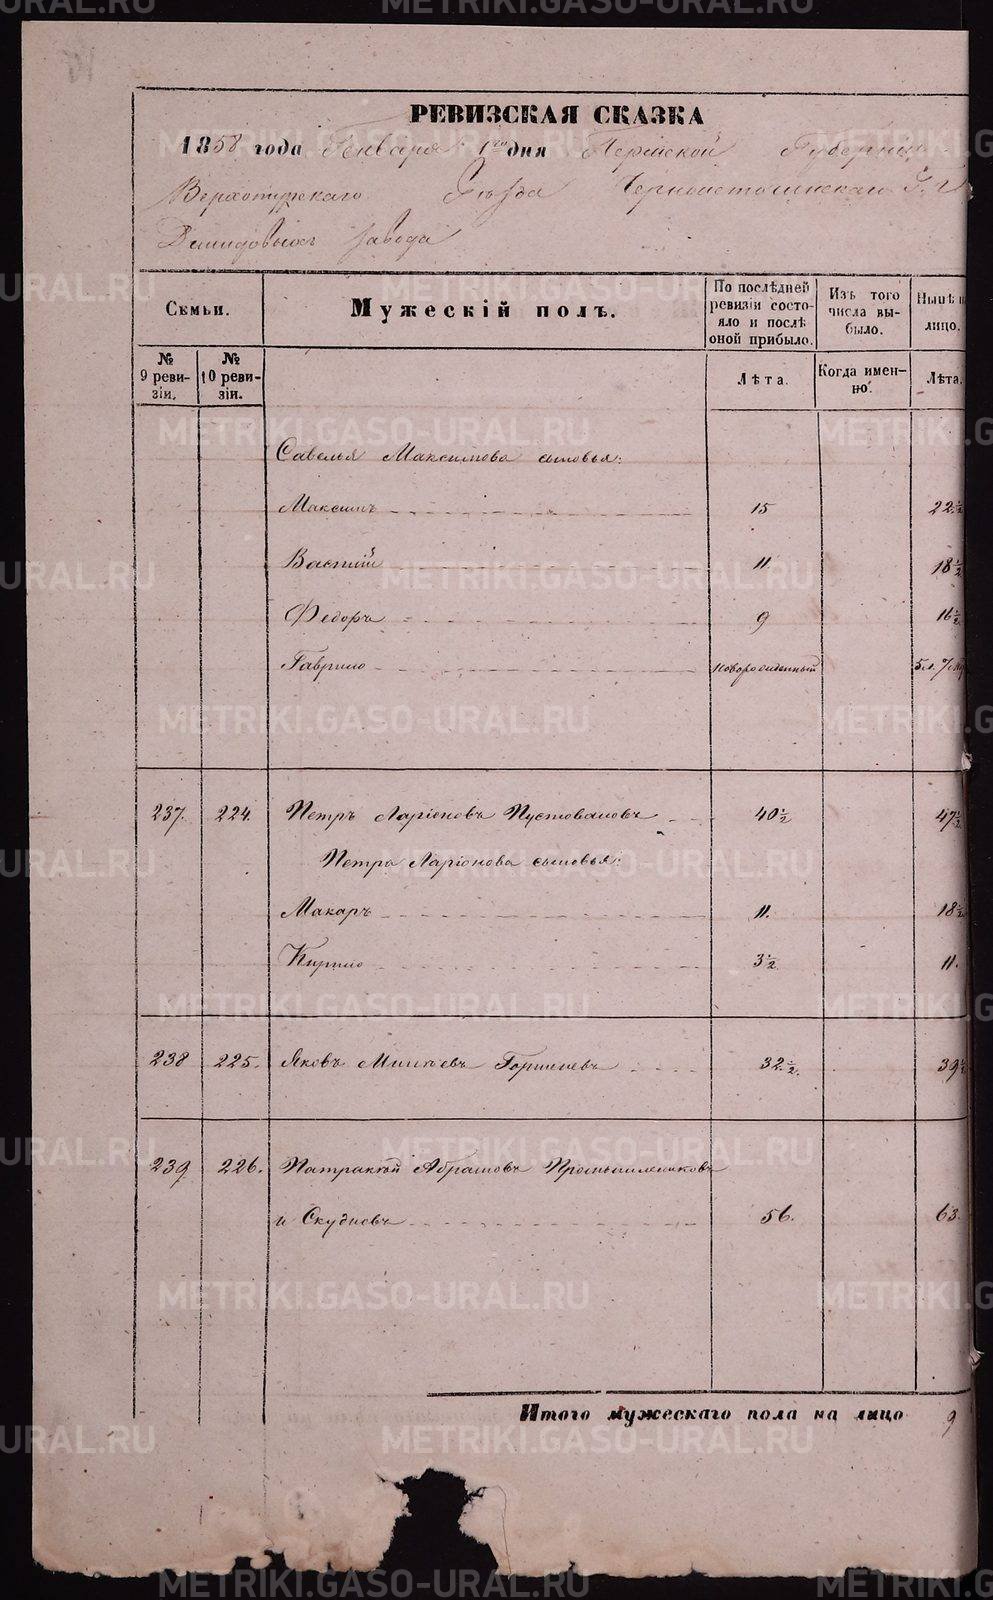 РЕВИЗСКАЯ СКАЗКА
1858 года Генваря 1го дня Пермской Губернии
Верхотурскаго Уѣзда Черноисточинскаго Г. г.
Демидовыхъ завода
Семьи.
Мужескій полъ.
По послѣдней ревизіи состояло и послѣ оной прибыло.
Изъ того числа выбыло.
Нынѣ н
лицо.
№ 9 ревизіи.
№ 10 ревизіи.
Лѣта.
Когда именно.
Лѣта.
Савелья Максимова сыновья:
Максимъ 15 22½
Василій 11 18½
Федоръ 9 16½
Гаврило новорожденный 5 л.
237. 224. Петръ Ларіоновъ Пустоваловъ 40½ 47½
Петра Ларіонова сыновья:
Макаръ 11. 18½
Кирило 3½ 11.
238 225. Яковъ Минѣевъ 32½. 39½
239 226. Патракѣй Абрамовъ Промышлениковъ
и Скудновъ 56. 63.
Итого мужескаго пола на лицо 9
METRIKI.GASO-URAL.RU